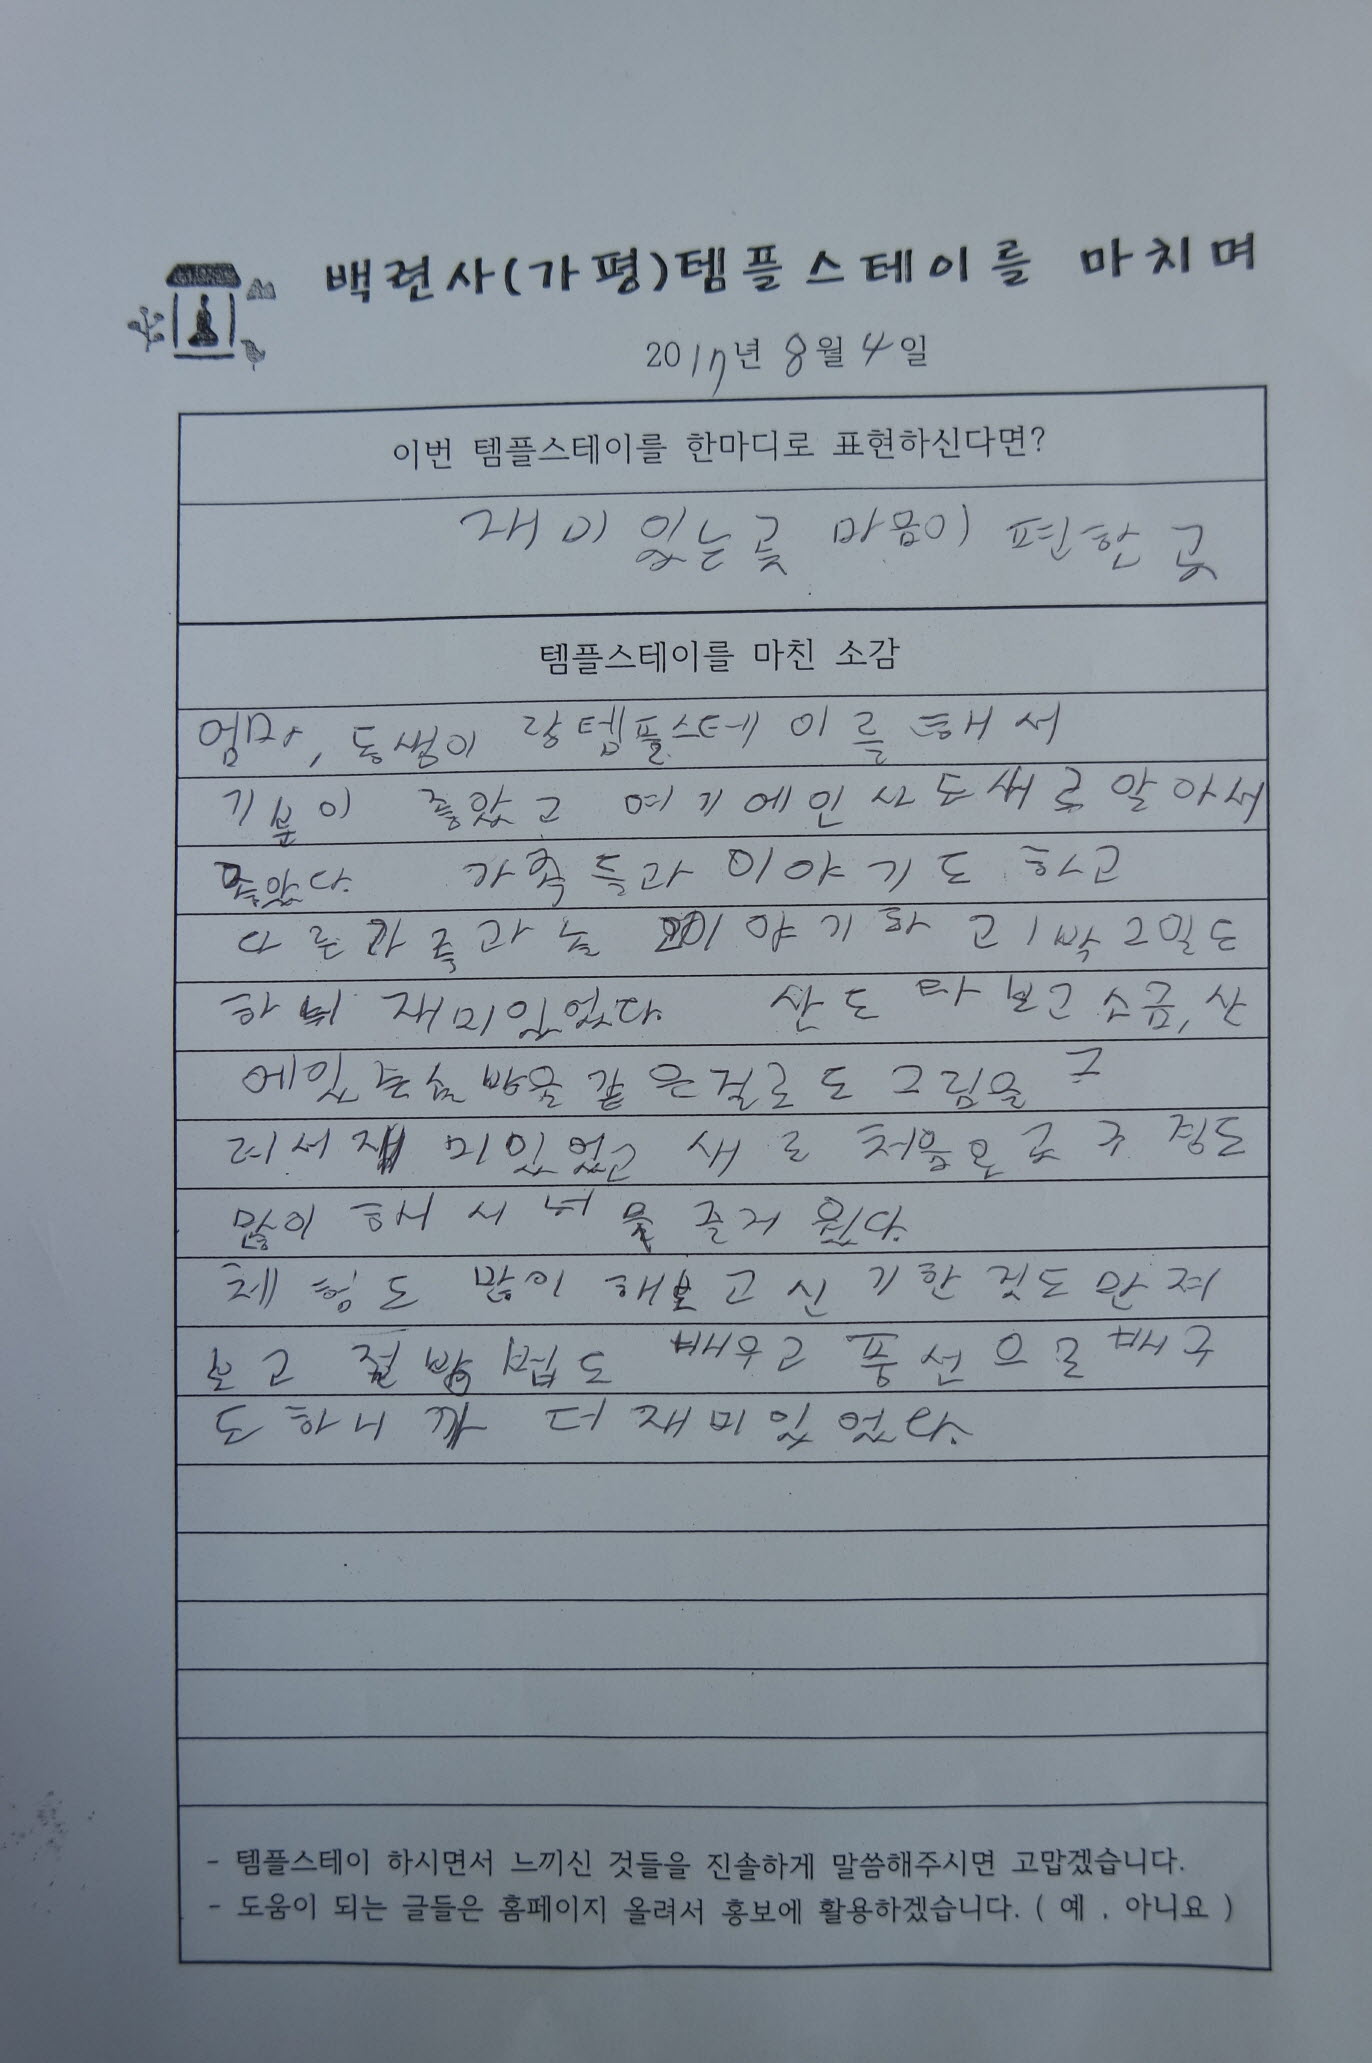 백련사(가평)템플스테이를 마치며
2017년 8월 4일
이번 템플스테이를 한마디로 표현하신다면?
재미있는곳 마음이 편한 곳
템플스테이를 마친 소감
엄마, 동생이랑템플스테이를 해서
기분이 좋았고 여기에인사도새로알아서
좋았다. 가족들과 이야기도 하고
다른가족과눈 이야기하고1박2일도
하니 재미있었다. 산도 타보고 소금, 산
에있 같은걸로도 그림을 그
려서재미있었고 새로 처음으로 경도
많이 해서 너물 즐거웠다.
체형도 많이 해보고신기한 것도만져
보고 절방법도 배우고 풍선으로배구
도하니까 더 재미있었다.
- 템플스테이 하시면서 느끼신 것들을 진솔하게 말씀해주시면 고맙겠습니다.
- 도움이 되는 글들은 홈페이지 올려서 홍보에 활용하겠습니다. ( 예 , 아니요 )